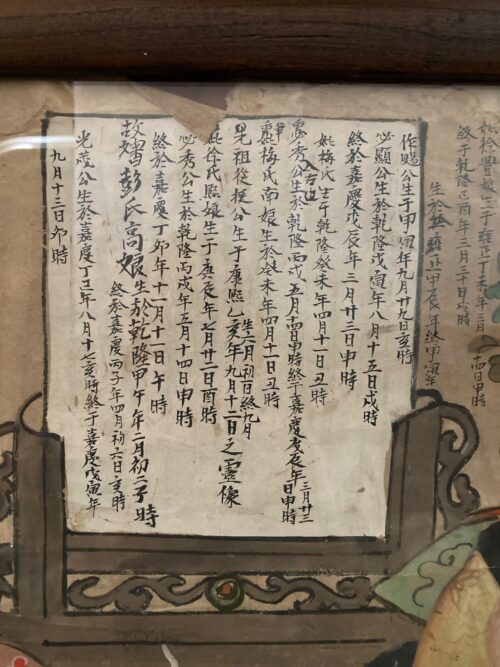 終于乾隆己酉年三月三十日
年終甲寅年
作賜公生于甲寅年九月廿九日亥時
必顯公生於乾隆戊寅年八月十五日戌時
終於嘉慶戊辰年三月廿三日申時
妣梅氏生于乾隆癸未年四月十一日丑時
秀公生於乾隆丙戌五月十四日申時終于嘉慶戊辰年三月廿三日申時
梅氏南娘生於癸未年四月十一日丑時
生六月初日終九月
祖從模公生于康熙乙亥年九月十二日之靈像
徐氏熙娘生于庚辰年七月廿二日酉時
必秀公生於乾隆丙戌年五月十四日申時
終於嘉慶丁卯年十一月十一日午時
故嬸彭氏高娘生於乾隆甲午年二月初二子時
終於嘉慶丙子年四月初六日亥時
光成公生於嘉慶丁巳年八月十七亥時終于嘉慶戊寅年
九月十三日卯時